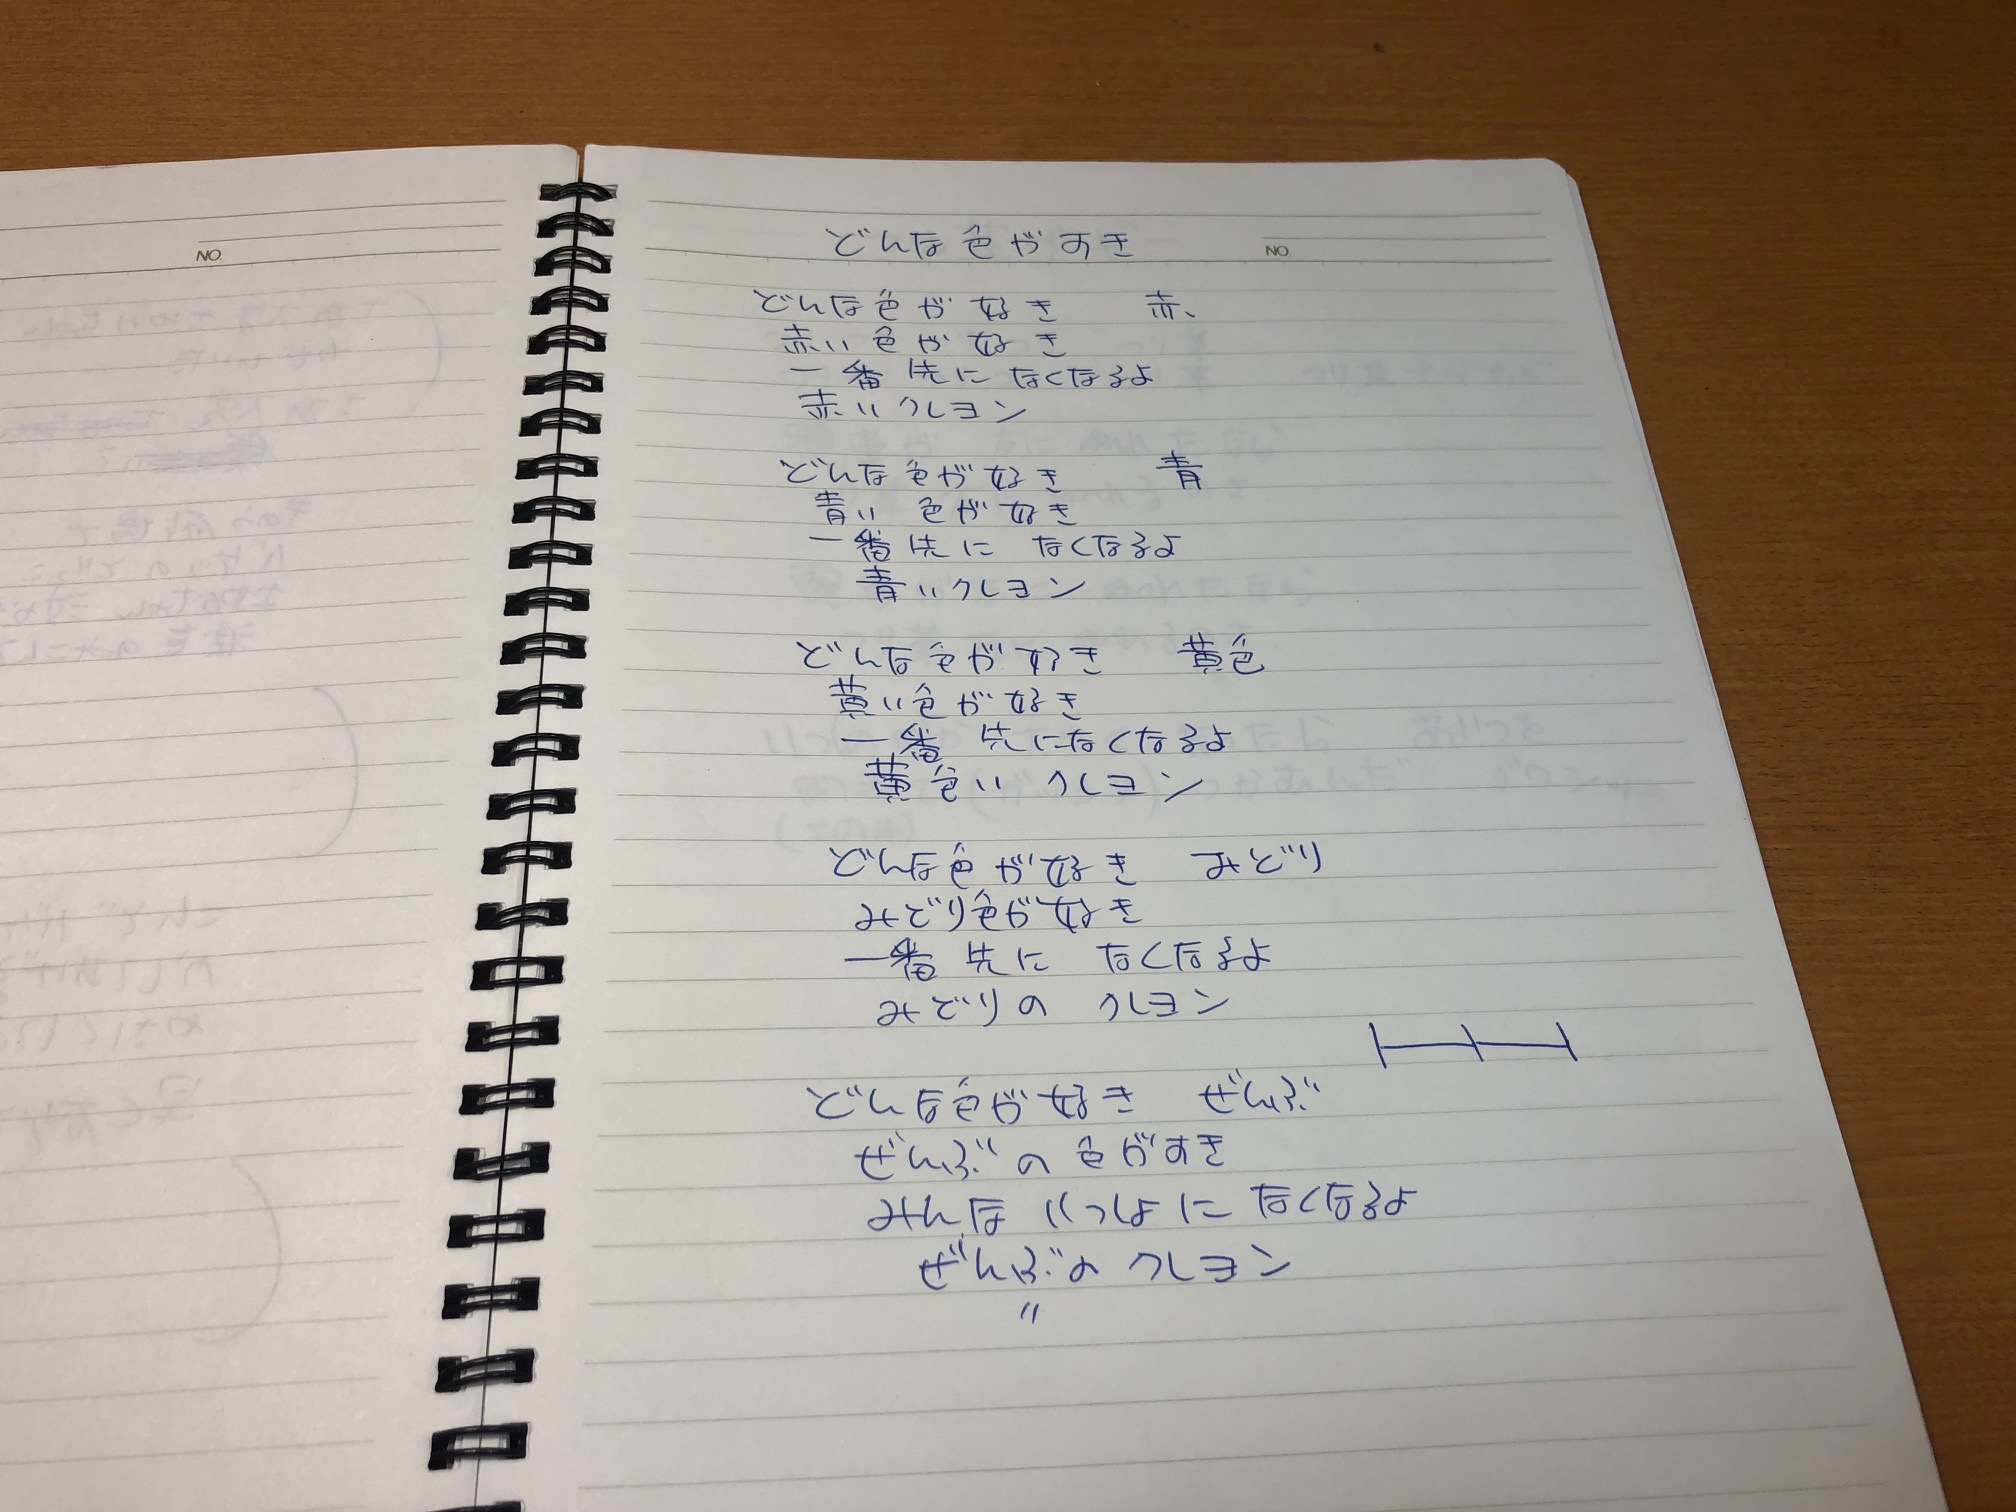 NO.
どんな色がすき
NO.
どんな色が好き 赤
赤い色が好き
一番先になくなるよ
赤いクレヨン
どんな色が好き 青
青い色が好き
一番先になくなるよ
青いクレヨン
どんな色が好き 黄色
黄い色が好き
一番先になくなるよ
黄色いクレヨン
どんな色が好き みどり
みどり色が好き
一番先になくなるよ
みどりのクレヨン
どんな色が好き ぜんぶ
ぜんぶの色がすき
みんないっしょになくなるよ
ぜんぶのクレヨン
〃